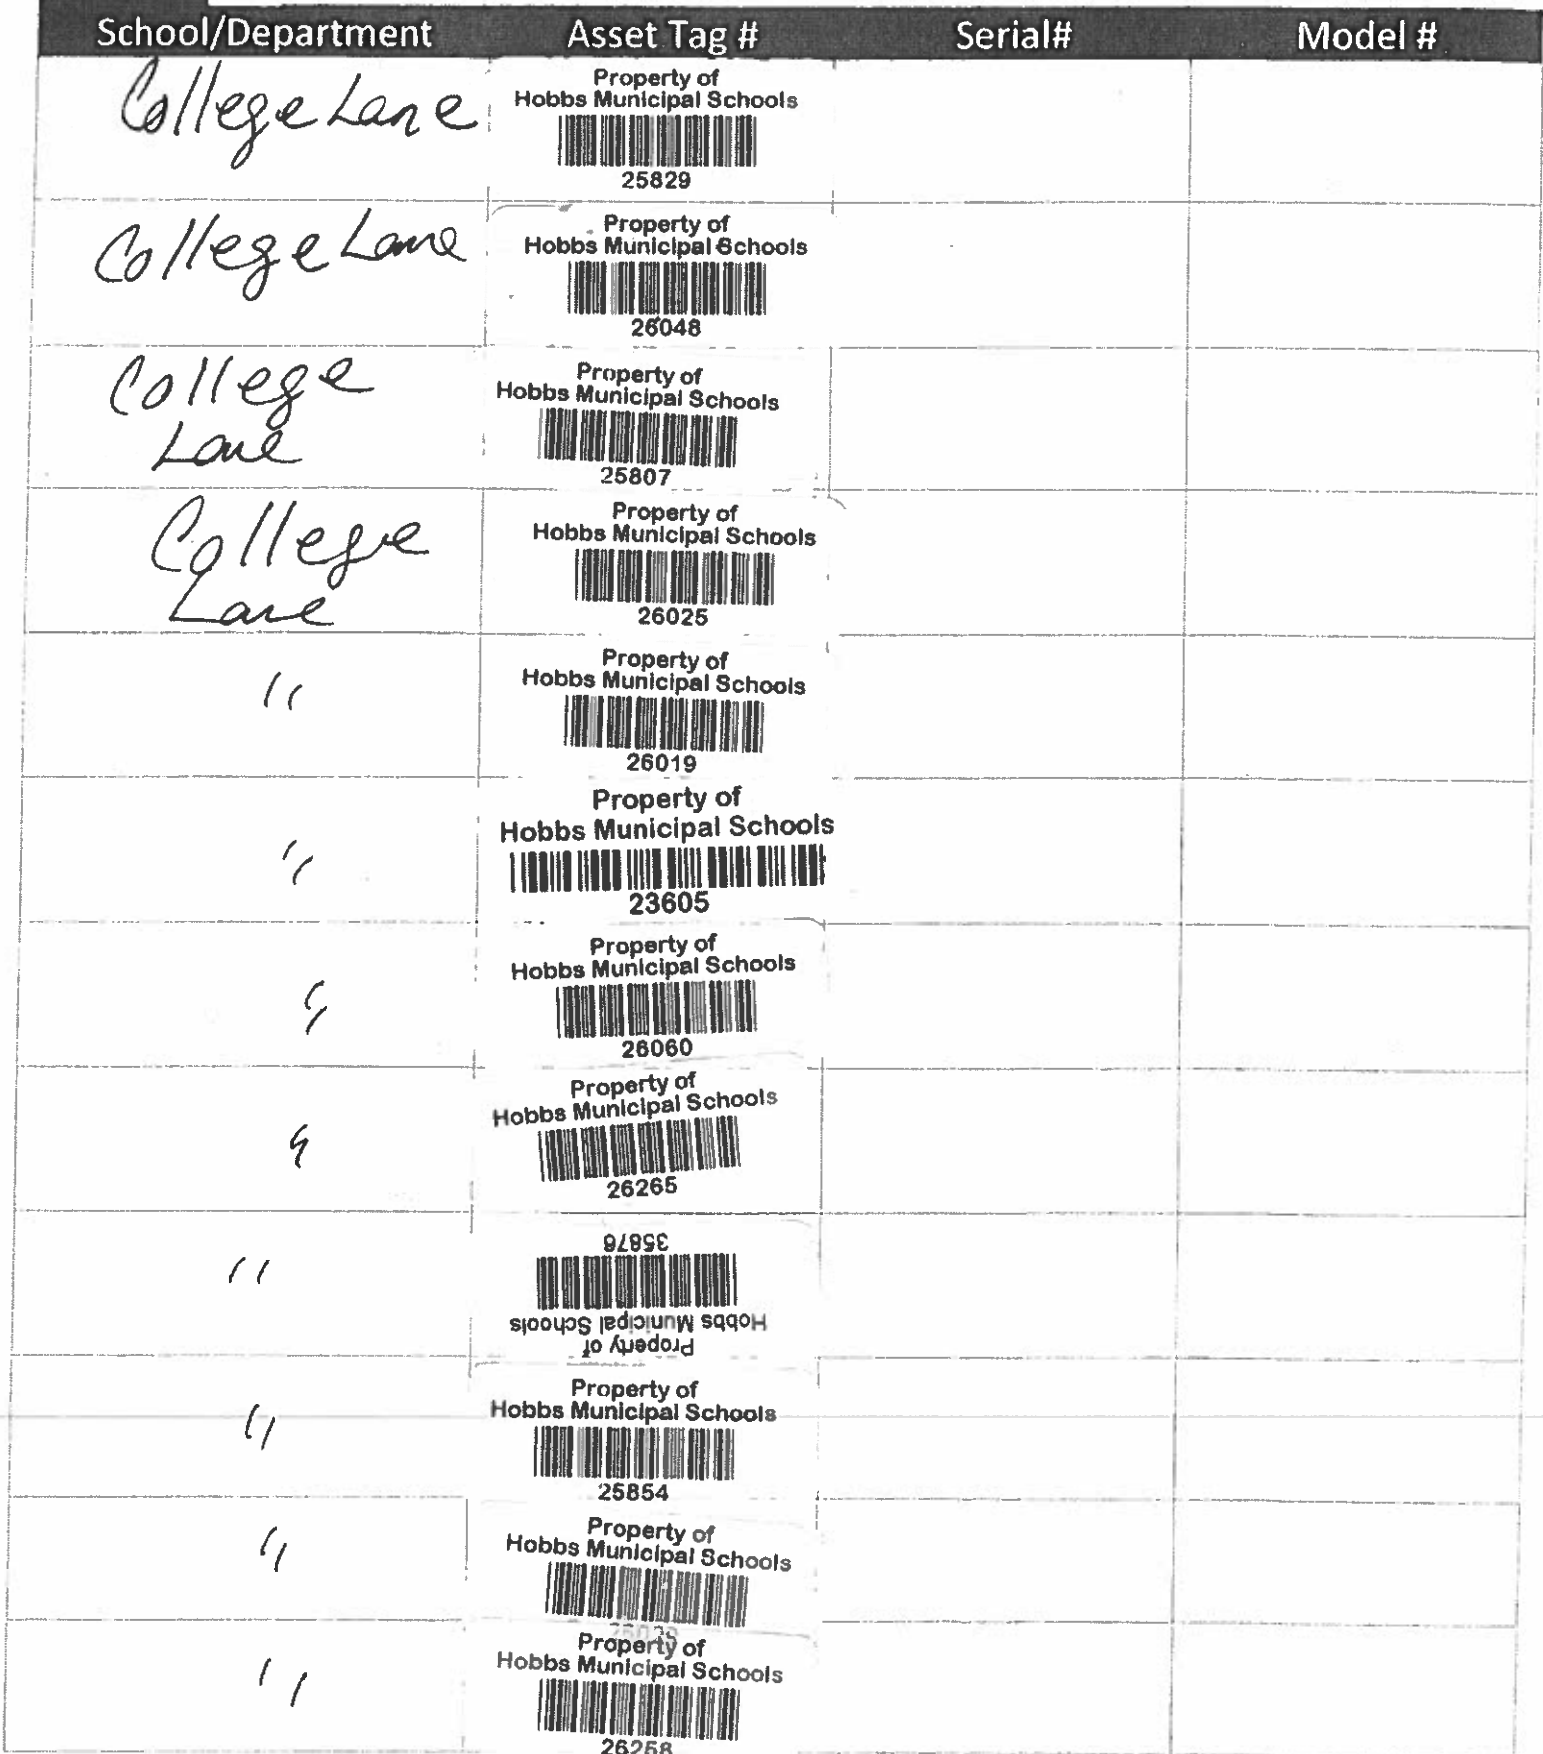 School/Department Asset Tag # Serial# Model #
College Lane
Property of
Hobbs Municipal Schools
25829
College Lane
Property of
Hobbs Municipal Schools
26048
College
Lane
Property of
Hobbs Municipal Schools
25807
College
Lane
Property of
Hobbs Municipal Schools
26025
"
Property of
Hobbs Municipal Schools
26019
"
Property of
Hobbs Municipal Schools
23605
"
Property of
Hobbs Municipal Schools
26060
"
Property of
Hobbs Municipal Schools
26265
"
Property of
Hobbs Municipal Schools
35876
"
Property of
Hobbs Municipal Schools
25854
"
Property of
Hobbs Municipal Schools
"
Property of
Hobbs Municipal Schools
26258